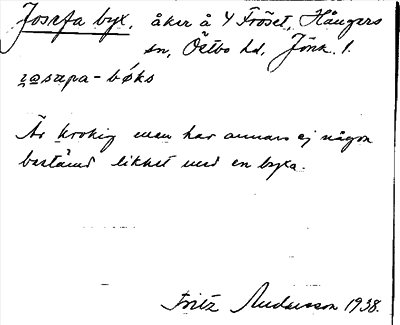 Josefa byx, åker å Y Fröset, Hångers
sn, Östbo hd, Jönk. l.
josepa-bóks
Är krokig men har annars ej någon
bestämd likhet med en byxa.
Fritz Andersson 1938.